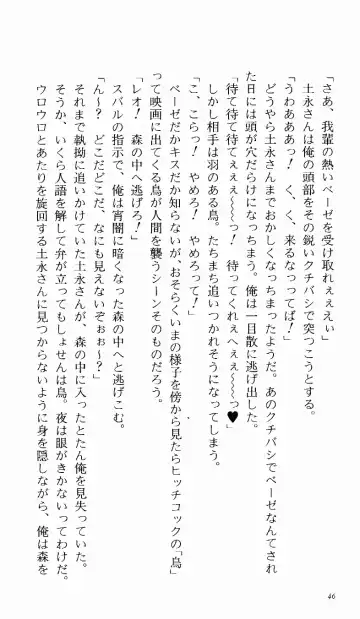 「さあ、我輩の熱いベーゼを受け取れぇぇえぃ」
土永さんは俺の頭部をその鋭いクチバシで突つこうとする。
「うわああぁっ！　く、く、来るなってば！」
どうやら土永さんまでおかしくなっちまったようだ。あのクチバシでベーゼなんてされ
た日には頭が穴だらけになっちまう。俺は一目散に逃げ出した。
「待て待て待てぇぇぇ〜〜〜っ！　待ってくれぇへぇぇ〜〜〜っ♥」
しかし相手は羽のある鳥。たちまち追いつかれそうになってしまう。
「こ、こらっ！　やめろ！　やめろって！」
ベーゼだかキスだか知らないが、おそらくいまの様子を傍から見たらヒッチコックの「鳥」
って映画に出てくる鳥が人間を襲うシーンそのものだろう。
「レオ！　森の中へ逃げろ！」
スバルの指示で、俺は宵闇に暗くなった森の中へと逃げこむ。
「ん〜？　どこだどこだ、なにも見えないぞぉぉ〜？」
それまで執拗に追いかけていた土永さんが、森の中に入ったとたん俺を見失っていた。
そうか、いくら人語を解して弁が立ってもしょせんは鳥。夜は眼がきかないってわけだ。
ウロウロとあたりを旋回する土永さんに見つからないように身を隠しながら、俺は森を
46